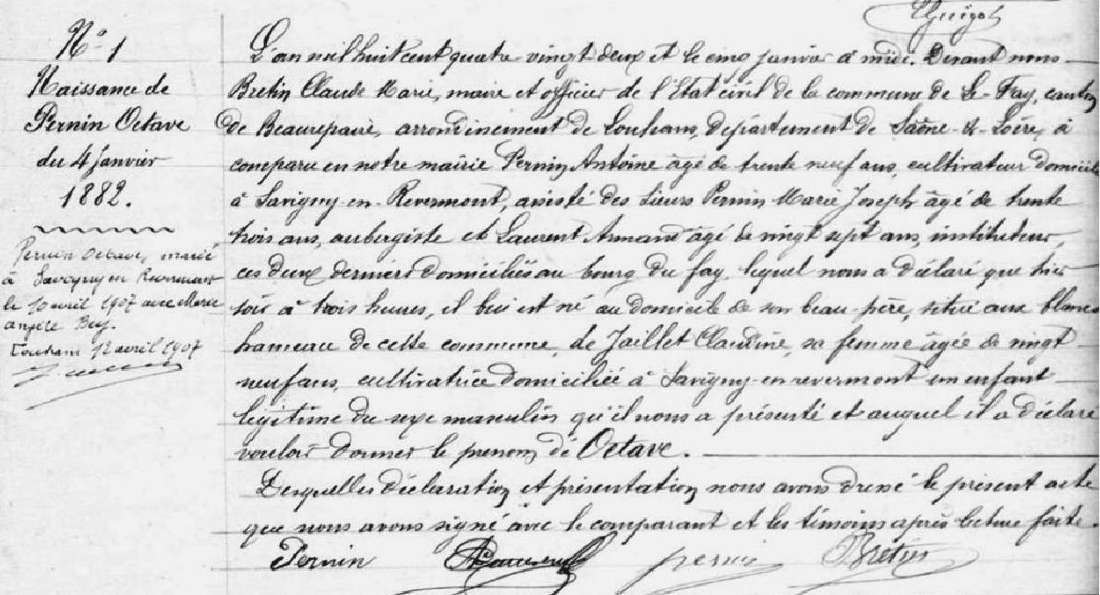 Guigot
Nº 1
Naissance de
Pernin Octave
du 4 janvier
1882.
Pernin Octave, marié
à Savigny en Revermont
le 10 avril 1907 avec Marie
angèle Buy.
Louhans 12 avril 1907
L'an mil huit cent quatre vingt deux et le cinq janvier à midi. Devant nous
Bretin Claude Marie, maire et officier de l'Etat civil de la commune de Le Fay, canton
de Beaurepaire, arrondissement de Louhans, département de Saône-&-Loire, à
comparu en notre mairie Pernin Antoine âgé de trente neuf ans, cultivateur domicilié
à Savigny-en-Revermont, assisté des sieurs Pernin Marie Joseph âgé de trente
trois ans, aubergiste et Laurent Armand âgé de vingt sept ans, instituteur,
ces deux derniers domiciliés au bourg du fay, lequel nous a déclaré que hier
soir à trois heures, il lui est né au domicile de son beau-père, situé aux blancs
hameau de cette commune, de Jaillet Claudine, sa femme âgée de vingt
neuf ans, cultivatrice domiciliée à Savigny-en-revermont un enfant
légitime du sexe masculin qu'il nous a présenté et auquel il a déclaré
vouloir donner le prenom de Octave.
Desquelles déclaration et présentation nous avons dressé le présent acte
que nous avons signé avec le comparant et les témoins après lecture faite.
Pernin pernin Bretin